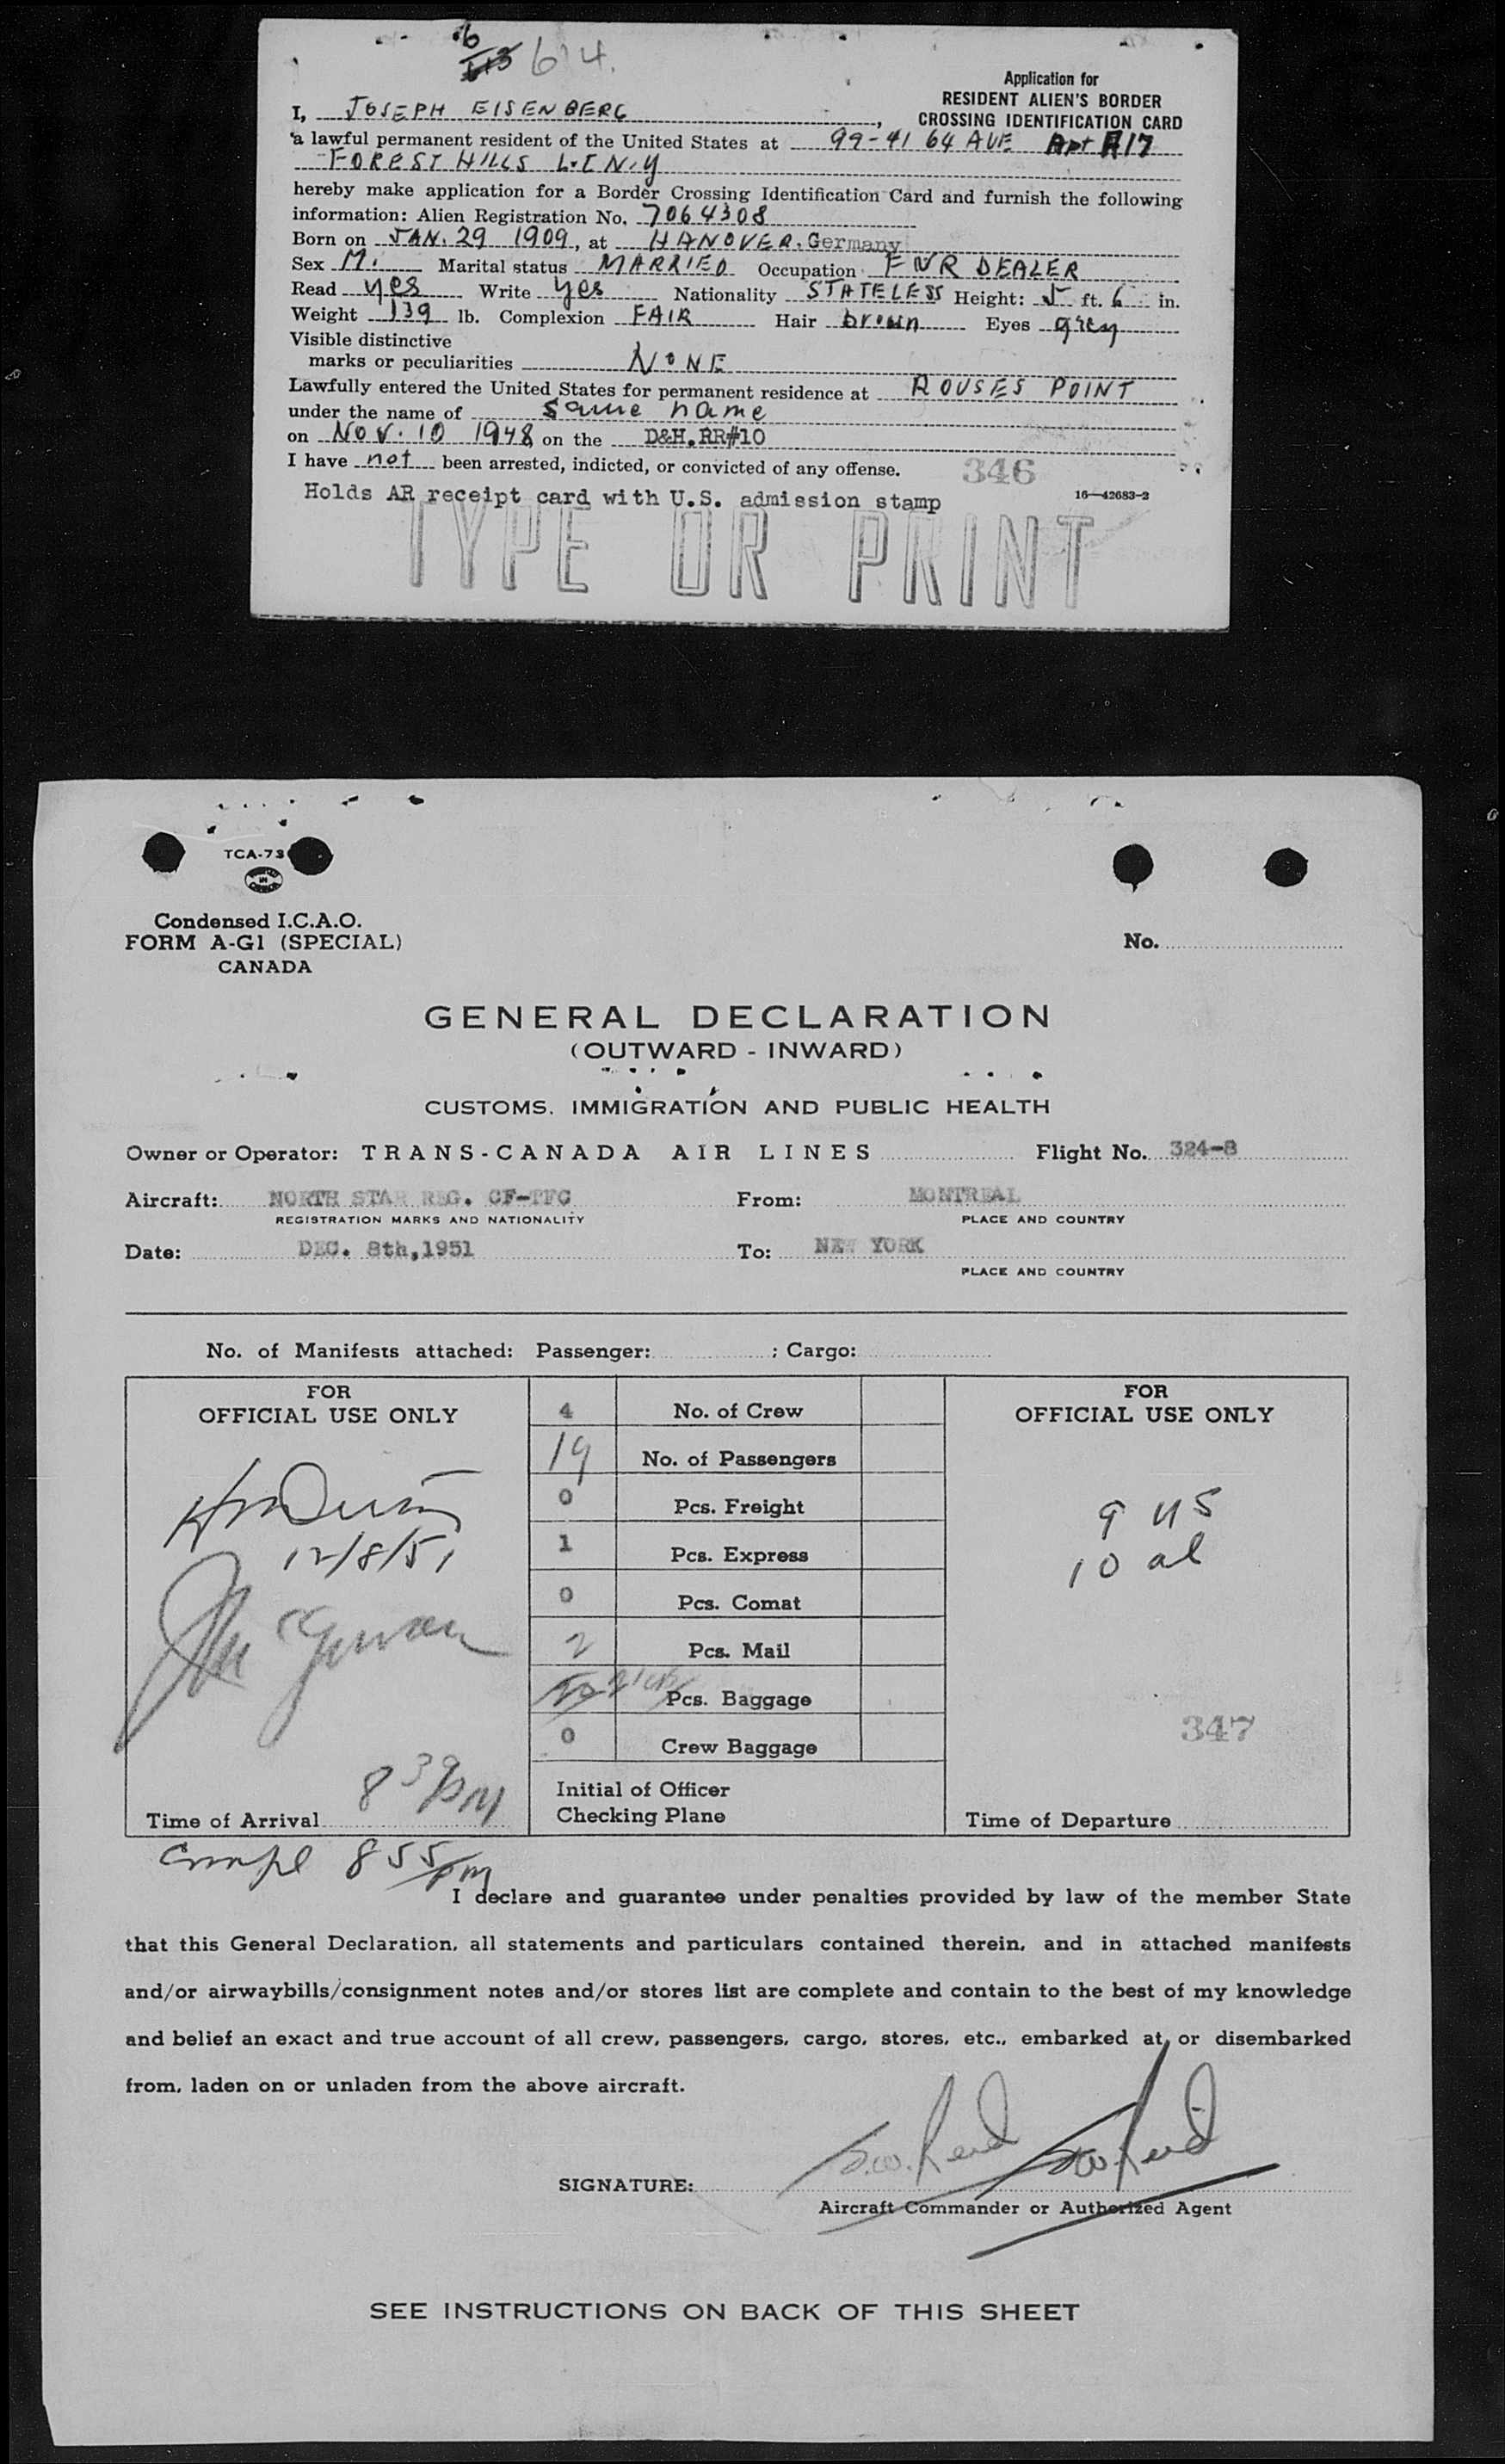 614.
Application for
RESIDENT ALIEN'S BORDER
CROSSING IDENTIFICATION CARD
I, JOSEPH EISENBERG,
a lawful permanent resident of the United States at 99-41 64 AVE Apt A17
FOREST HILLS L.I N.Y
hereby make application for a Border Crossing Identification Card and furnish the following
information: Alien Registration No. 7064308
Born on JAN. 29 1909, at HANOVER, Germany
Sex M. Marital status MARRIED Occupation FUR DEALER
Read yes Write yes Nationality STATELESS Height: 5 ft. 6 in.
Weight 139 lb. Complexion FAIR Hair brown Eyes grey
Visible distinctive
marks or peculiarities NONE
Lawfully entered the United States for permanent residence at ROUSES POINT
under the name of same name
on NOV. 10 1948 on the D&H. RR#10
I have not been arrested, indicted, or convicted of any offense.
346
Holds AR receipt card with U.S. admission stamp
16—42683-2
TYPE OR PRINT
TCA-73
Condensed I.C.A.O.
FORM A-G1 (SPECIAL)
CANADA
No.
GENERAL DECLARATION
(OUTWARD - INWARD)
CUSTOMS, IMMIGRATION AND PUBLIC HEALTH
Owner or Operator: TRANS-CANADA AIR LINES Flight No. 324-8
Aircraft: NORTH STAR REG. CF-TFC From: MONTREAL
REGISTRATION MARKS AND NATIONALITY PLACE AND COUNTRY
Date: DEC. 8th, 1951 To: NEW YORK
PLACE AND COUNTRY
No. of Manifests attached: Passenger: ; Cargo:
FOR
OFFICIAL USE ONLY
12/8/51
8 39 PM
Time of Arrival
4 No. of Crew
19 No. of Passengers
0 Pcs. Freight
1 Pcs. Express
0 Pcs. Comat
2 Pcs. Mail
Pcs. Baggage
0 Crew Baggage
Initial of Officer
Checking Plane
FOR
OFFICIAL USE ONLY
9 US
10 al
347
Time of Departure
Compl 8 55 PM
I declare and guarantee under penalties provided by law of the member State
that this General Declaration, all statements and particulars contained therein, and in attached manifests
and/or airwaybills/consignment notes and/or stores list are complete and contain to the best of my knowledge
and belief an exact and true account of all crew, passengers, cargo, stores, etc., embarked at, or disembarked
from, laden on or unladen from the above aircraft.
SIGNATURE: S.W. Reid S.W. Reid
Aircraft Commander or Authorized Agent
SEE INSTRUCTIONS ON BACK OF THIS SHEET